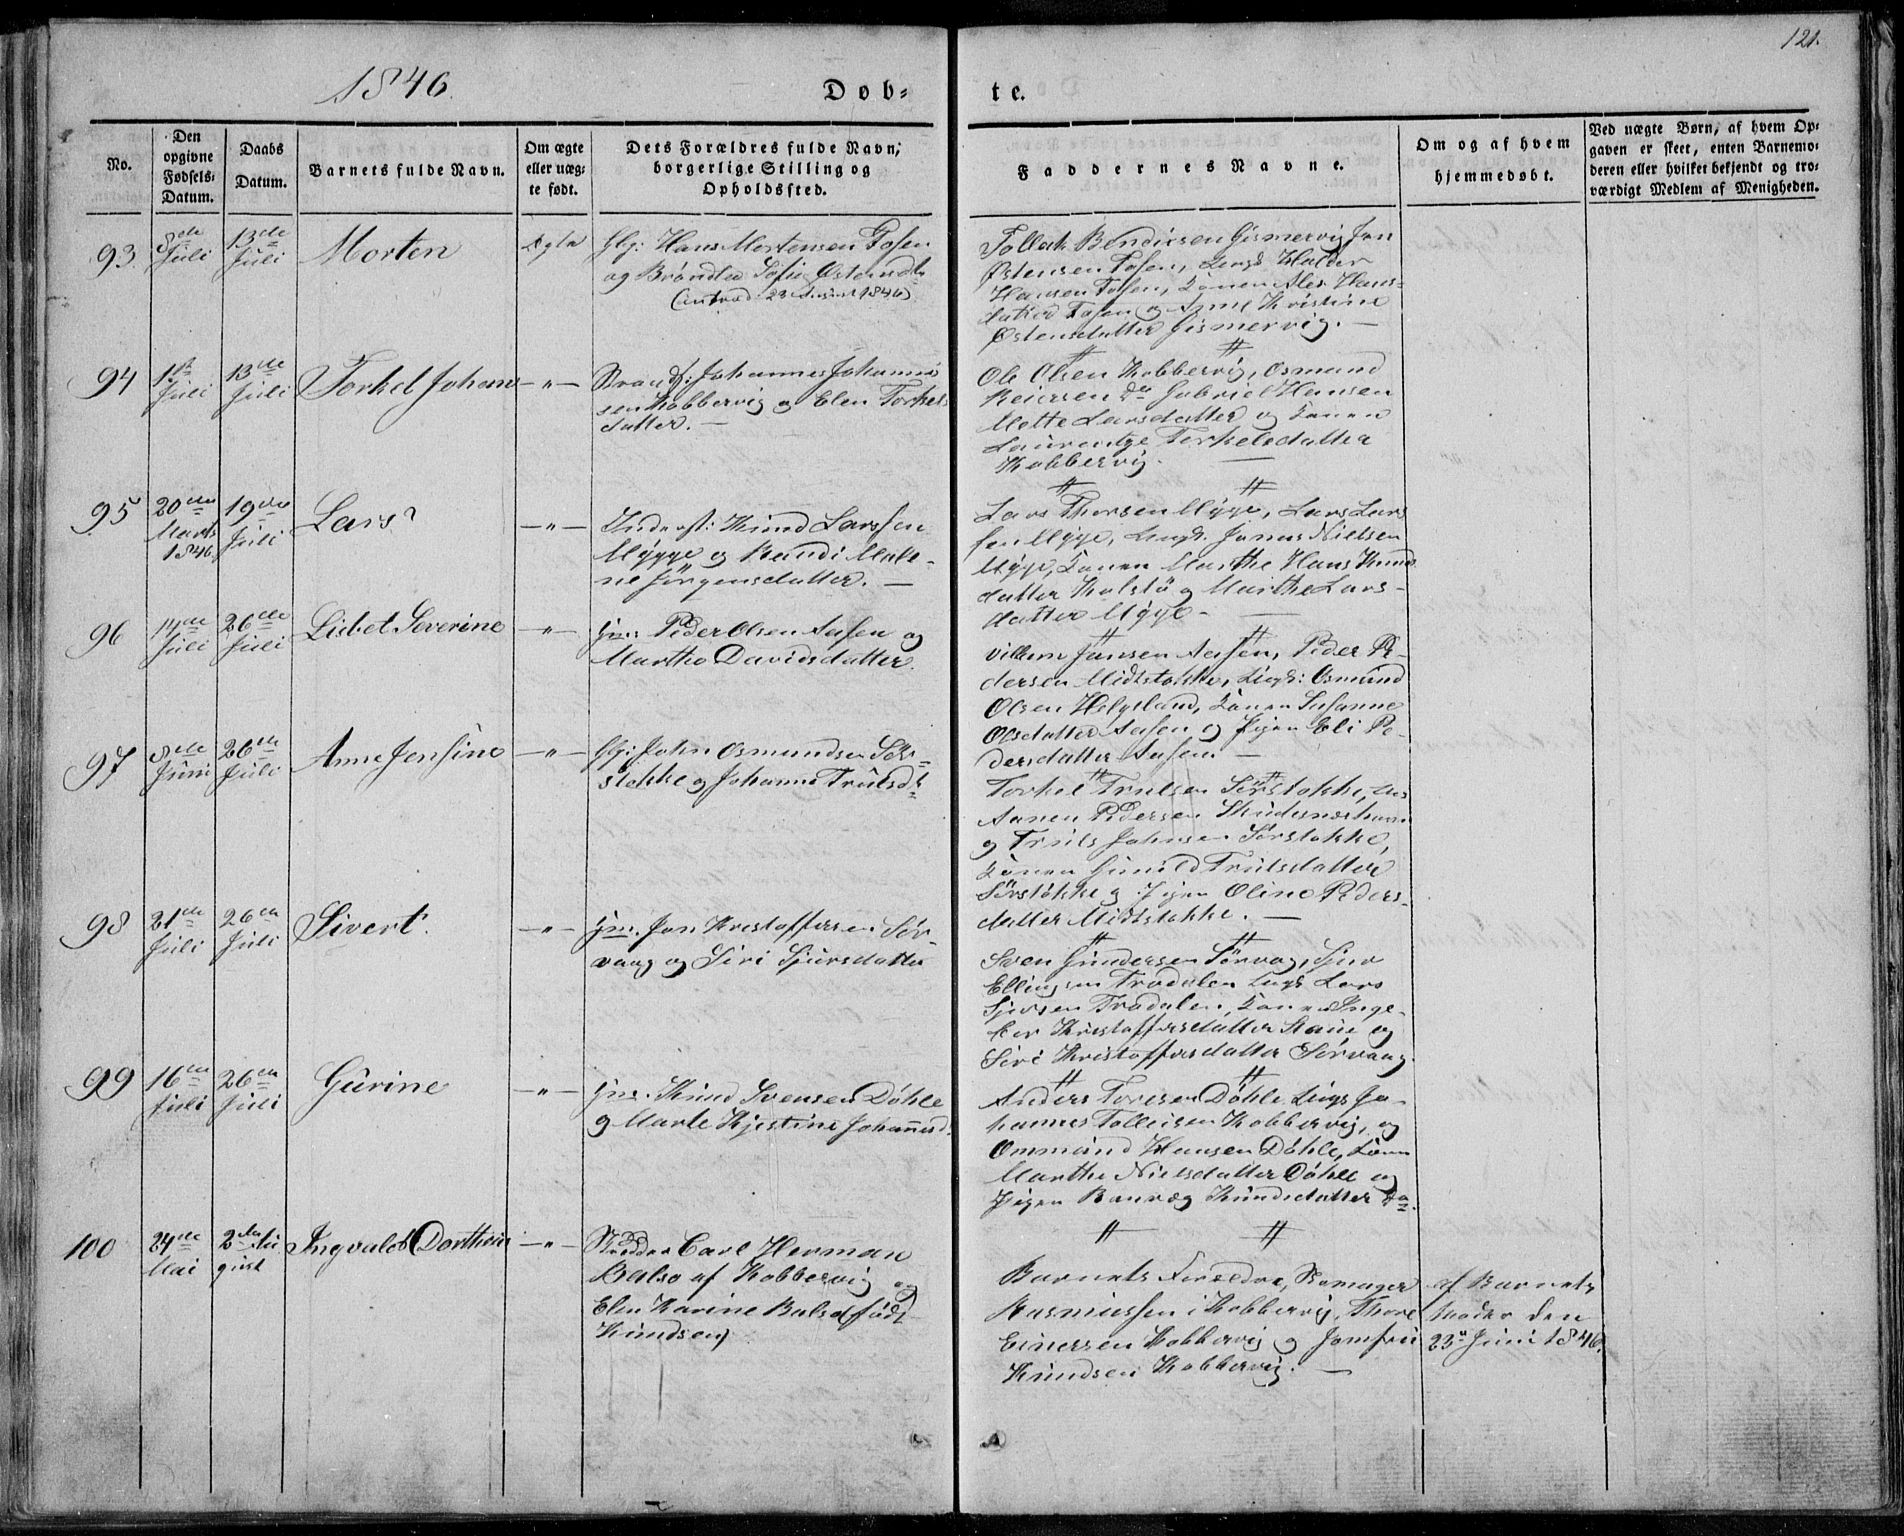 121.
1846. Døb-te.
No.
Den opgivne Fødsels-Datum.
Daabs Datum.
Barnets fulde Navn.
Om ægte eller uæg-te født.
Dets Forældres fulde Navn, borgerlige Stilling og Opholdssted.
Faddernes Navne.
Om og af hvem hjemmedøbt.
Ved uægte Børn, af hvem Op-gaven er skeet, enten Barnemo-deren eller hvilket bekjendt og tro-værdigt Medlem af Menigheden.
93. 8de Juli 13de Juli Morten Ægte
Gbr: Hans Mortensen Fosen
og Brønla Sofie Østensdt
(introd: 23 August 1846)
Tollak Bendixen Gismervig, Jon
Østensen Fosen, Ungk Halder
Hansen Fosen, Konen Hans-
datter Fosen og Anne Kristine
Østensdatter Gismervig. —
94 1ste Juli 13de Juli Torkel Johan —"—
Strands: Johannes Johannes
sen Kobbervig og Elen Torkels
datter. —
Ole Olsen Kobbervig, Osmund
Reiersen do Gabriel Hansen
Mette Larsdatter og Konen
Laurentze Torkelsdatter
Kobbervig.
95 20de Marts 1846. 19de Juli Lars —"—
Inderst: Knud Larssen
Mygge og Randi Male-
ne Jörgensdatter. —
Lars Thorsen Myge, Lars Lars
sen Myge, Ungk: Jonas Nielsen
Myge, Konen Marthe Hans Knud
datter Kolstö og Marthe Lars-
datter Myge —
96 14de Juli 26de Juli Lisbet Severine —"—
Gm: Peder Olsen Aasen og
Marthe Davidsdatter.
Villum Jansen Aasen, Peder Pe-
dersen Midtstokke, Ungk: Osmund
Olsen Helgeland, Konen Susanne
Olsdatter Aasen og Pigen Eli Pe-
dersdatter Aasen. —
97 8de Juni 26de Juli Anne Jensine —"—
Gbr: John Osmundsen Sör-
stokke og Johanne Trulsdt.
Torkel Trulsen Sörstokke,
Aanen Pedersen Skudesneshavn
og Truls Johnsen Sörstokke,
Konen Gunild Trulsdatter
Sörstokke og Pigen Oline Peders-
datter Midtstokke. —
98 21de Juli 26de Juli Sivert. —"—
Gm. Jon Kristoffersen Sör-
vaag og Siri Sjursdatter
Sven Gundersen Sörvag, Sjur
Ellingsen Tradalen Ungk Lars
Sjursen Tradalen, Konen Inge-
bor Kristoffersdatter Staue og
Siri Kristoffersdatter Sörvaag.
99 16de Juli 26de Juli Gurine —"—
Gm. Knud Svensen Döhle
og Marte Kjestine Johannesd.
Anders Toresen Döhle Ungk Jo-
hannes Tolleisen Kobbervig, og
Ommund Hansen Döhle, Konen
Marthe Nielsdatter Döhle og
Pigen Knudsdatter do.
100 24de Mai 2den August Ingvald Dorthea —"—
Skrædder Carl Herman
Balso af Kobbervig og
Elen Karine Balso (född
Knudsen)
Barnets Forældre,
Rasmussen i Kobbervig, Thore
Einersen Kobbervig og Jomfru
Knudsen Kobbervig. —
af Barnets
Moder den
23de Juni 1846.